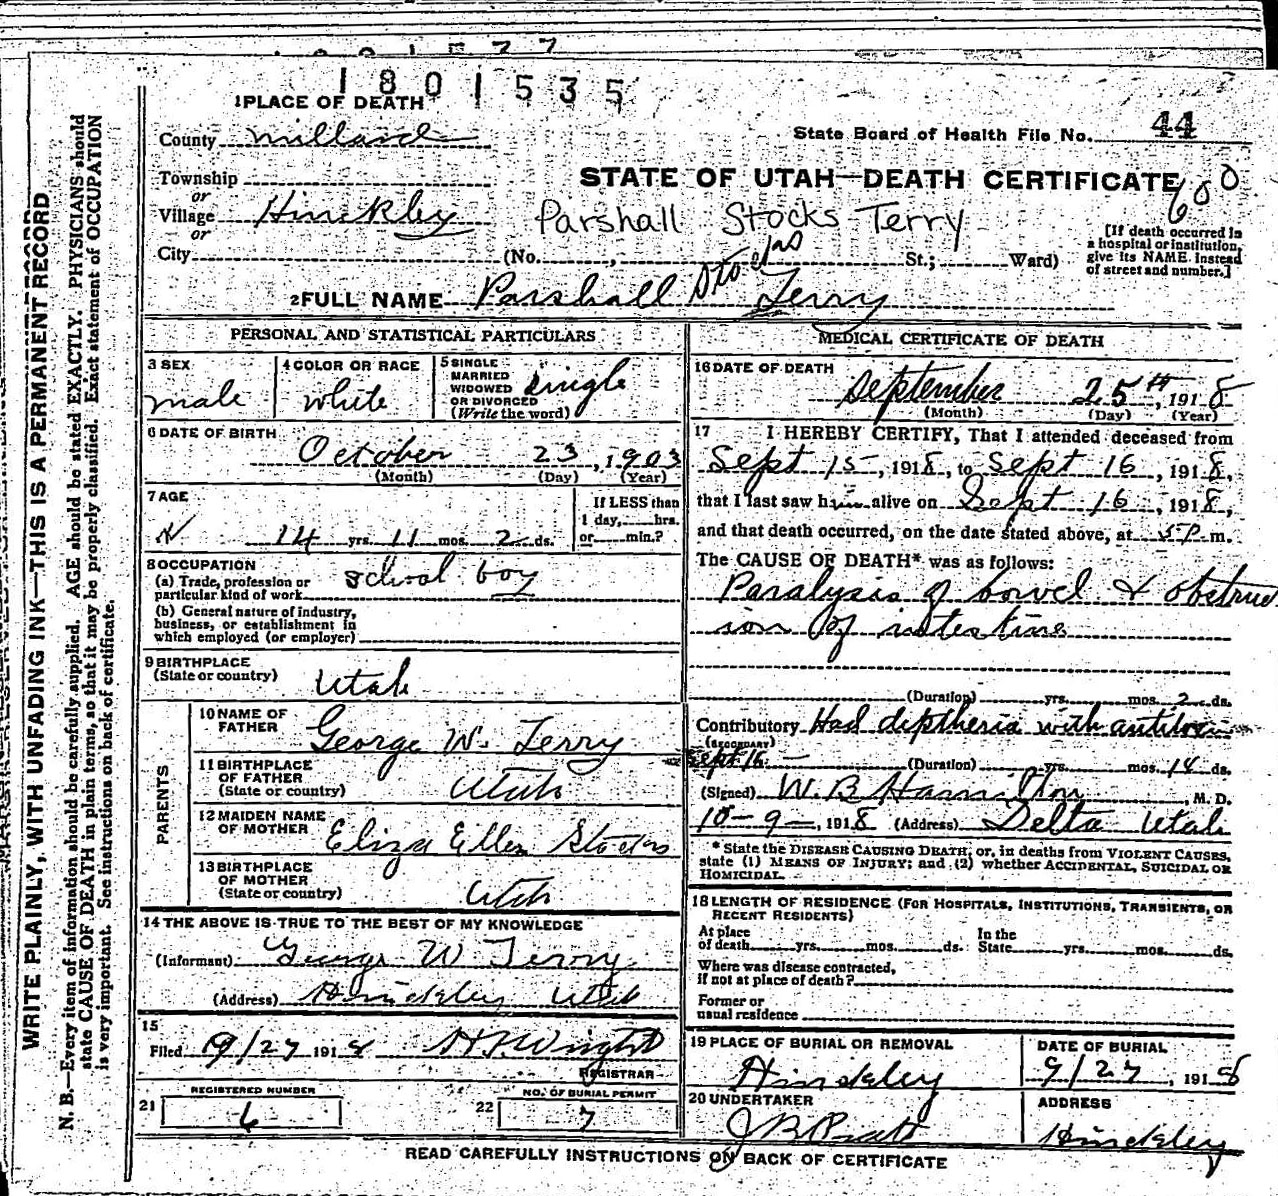 1801535
1 PLACE OF DEATH
County Millard
State Board of Health File No. 44
Township
or
Village Hinckley
or
City
STATE OF UTAH—DEATH CERTIFICATE
600
Parshall Stocks Terry
(No. , St.; Ward)
[If death occurred in
a hospital or institution,
give its NAME. instead
of street and number.]
2 FULL NAME Parshall Stocks Terry
PERSONAL AND STATISTICAL PARTICULARS
3 SEX
male
4 COLOR OR RACE
white
5 SINGLE
MARRIED
WIDOWED
OR DIVORCED
(Write the word)
single
6 DATE OF BIRTH
October 23, 1903
(Month) (Day) (Year)
7 AGE
14 yrs. 11 mos. 2 ds.
If LESS than
1 day, hrs.
or min.?
8 OCCUPATION
(a) Trade, profession or
particular kind of work school boy
(b) General nature of industry,
business, or establishment in
which employed (or employer)
9 BIRTHPLACE
(State or country) Utah
PARENTS
10 NAME OF
FATHER George W. Terry
11 BIRTHPLACE
OF FATHER
(State or country) Utah
12 MAIDEN NAME
OF MOTHER Eliza Ellen Stocks
13 BIRTHPLACE
OF MOTHER
(State or country) Utah
14 THE ABOVE IS TRUE TO THE BEST OF MY KNOWLEDGE
(Informant) George W Terry
(Address) Hinckley Utah
15
Filed 9/27 1918 Wright
REGISTRAR
REGISTERED NUMBER
21 6
NO. OF BURIAL PERMIT
22 7
MEDICAL CERTIFICATE OF DEATH
16 DATE OF DEATH
September 25th, 1918
(Month) (Day) (Year)
17 I HEREBY CERTIFY, That I attended deceased from
Sept 15, 1918, to Sept 16, 1918,
that I last saw him alive on Sept 16, 1918,
and that death occurred, on the date stated above, at 5 P m.
The CAUSE OF DEATH* was as follows:
Paralysis of bowel & obstruc
ion of intestine
(Duration) yrs. mos. 2 ds.
Contributory Had diptheria with antitoxin
(SECONDARY)
Sept 16 — (Duration) yrs. mos. 14 ds.
(Signed) W. B Hamilton, M. D.
10-9-, 1918 (Address) Delta Utah
* State the DISEASE CAUSING DEATH; or, in deaths from VIOLENT CAUSES,
state (1) MEANS OF INJURY; and (2) whether ACCIDENTAL, SUICIDAL OR
HOMICIDAL.
18 LENGTH OF RESIDENCE (FOR HOSPITALS, INSTITUTIONS, TRANSIENTS, OR
RECENT RESIDENTS)
At place
of death yrs. mos. ds.
In the
State yrs. mos. ds.
Where was disease contracted,
if not at place of death?
Former or
usual residence
19 PLACE OF BURIAL OR REMOVAL
Hinckley
DATE OF BURIAL
9/27, 1918
20 UNDERTAKER
J B Pratt
ADDRESS
Hinckley
READ CAREFULLY INSTRUCTIONS ON BACK OF CERTIFICATE
WRITE PLAINLY, WITH UNFADING INK—THIS IS A PERMANENT RECORD
N. B.—Every item of information should be carefully supplied. AGE should be stated EXACTLY. PHYSICIANS should
state CAUSE OF DEATH in plain terms, so that it may be properly classified. Exact statement of OCCUPATION
is very important. See instructions on back of certificate.